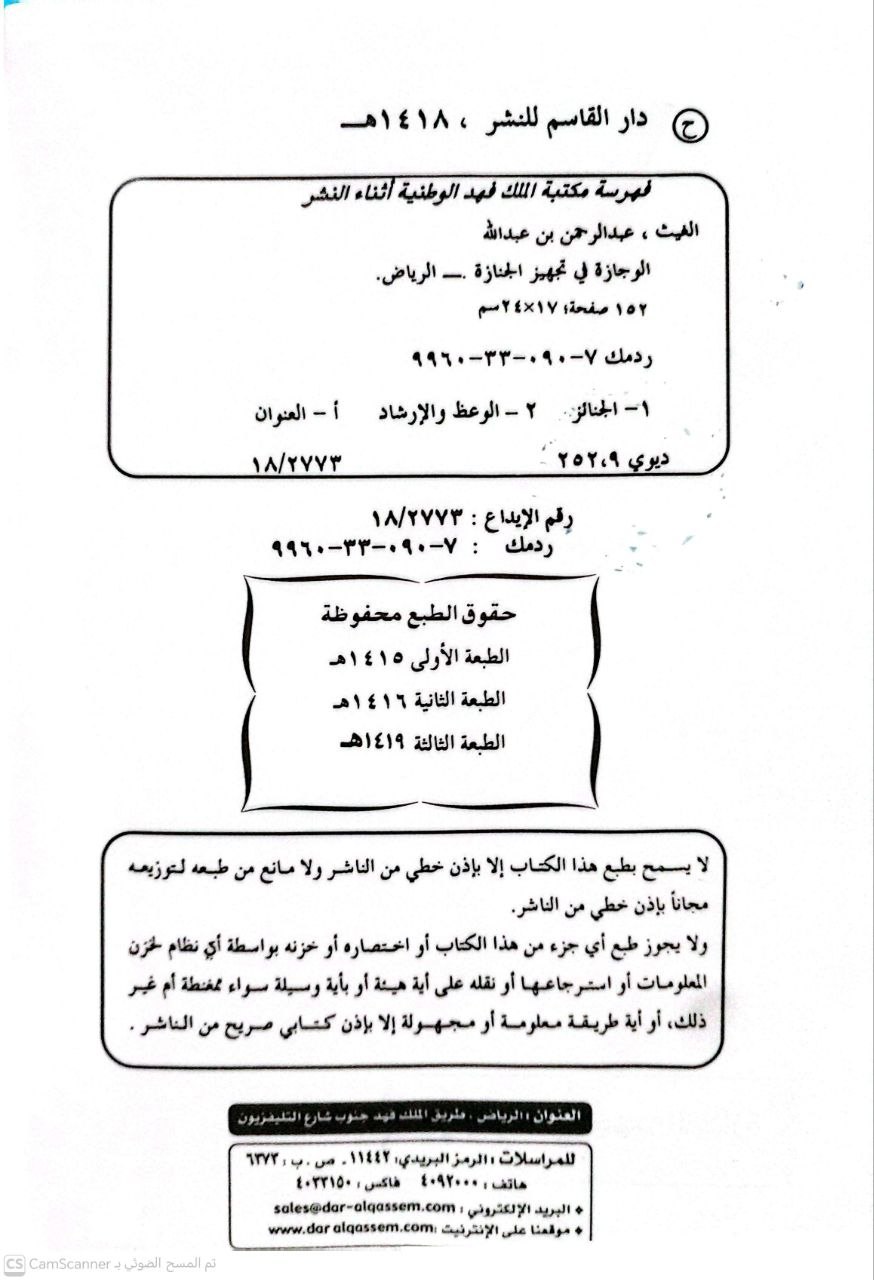 ح دار القاسم للنشر ، ١٤١٨هـ
فهرسة مكتبة الملك فهد الوطنية أثناء النشر
الغيث ، عبدالرحمن بن عبدالله
الوجازة في تجهيز الجنازة .ــ الرياض.
١٥٢ صفحة؛ ١٧×٢٤سم
ردمك ٧-٠٩٠-٣٣-٩٩٦٠
١- الجنائز ٢ - الوعظ والإرشاد أ - العنوان
ديوي ٢٥٢،٩ ١٨/٢٧٧٣
رقم الإيداع : ١٨/٢٧٧٣
ردمك : ٧-٠٩٠-٣٣-٩٩٦٠
حقوق الطبع محفوظة
الطبعة الأولى ١٤١٥هـ
الطبعة الثانية ١٤١٦هـ
الطبعة الثالثة ١٤١٩هـ
لا يسمح بطبع هذا الكتاب إلا بإذن خطي من الناشر ولا مانع من طبعه لتوزيعه
مجاناً بإذن خطي من الناشر.
ولا يجوز طبع أي جزء من هذا الكتاب أو اختصاره أو خزنه بواسطة أي نظام لخزن
المعلومات أو استرجاعها أو نقله على أية هيئة أو بأية وسيلة سواء ممغنطة أم غير
ذلك، أو أية طريقة معلومة أو مجهولة إلا بإذن كتابي صريح من الناشر .
العنوان : الرياض . طريق الملك فهد جنوب شارع التليفزيون
للمراسلات : الرمز البريدي: ١١٤٤٢ . ص . ب : ٦٣٧٣
هاتف : ٤٠٩٢٠٠٠ فاكس : ٤٠٣٣١٥٠
♦ البريد الإلكتروني : sales@dar-alqassem.com
♦ موقعنا على الإنترنيت :www.dar alqassem.com
CS CamScanner تم المسح الضوئي بـ